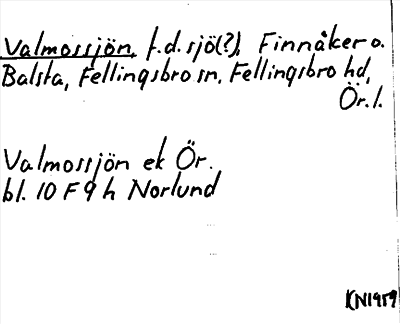 Valmossjön, f.d. sjö(?), Finnåker o.
Balsta, Fellingsbro sn, Fellingsbro hd,
Ör. l.
Valmossjön ek Ör.
bl. 10 F 9 h Norlund
KN1959